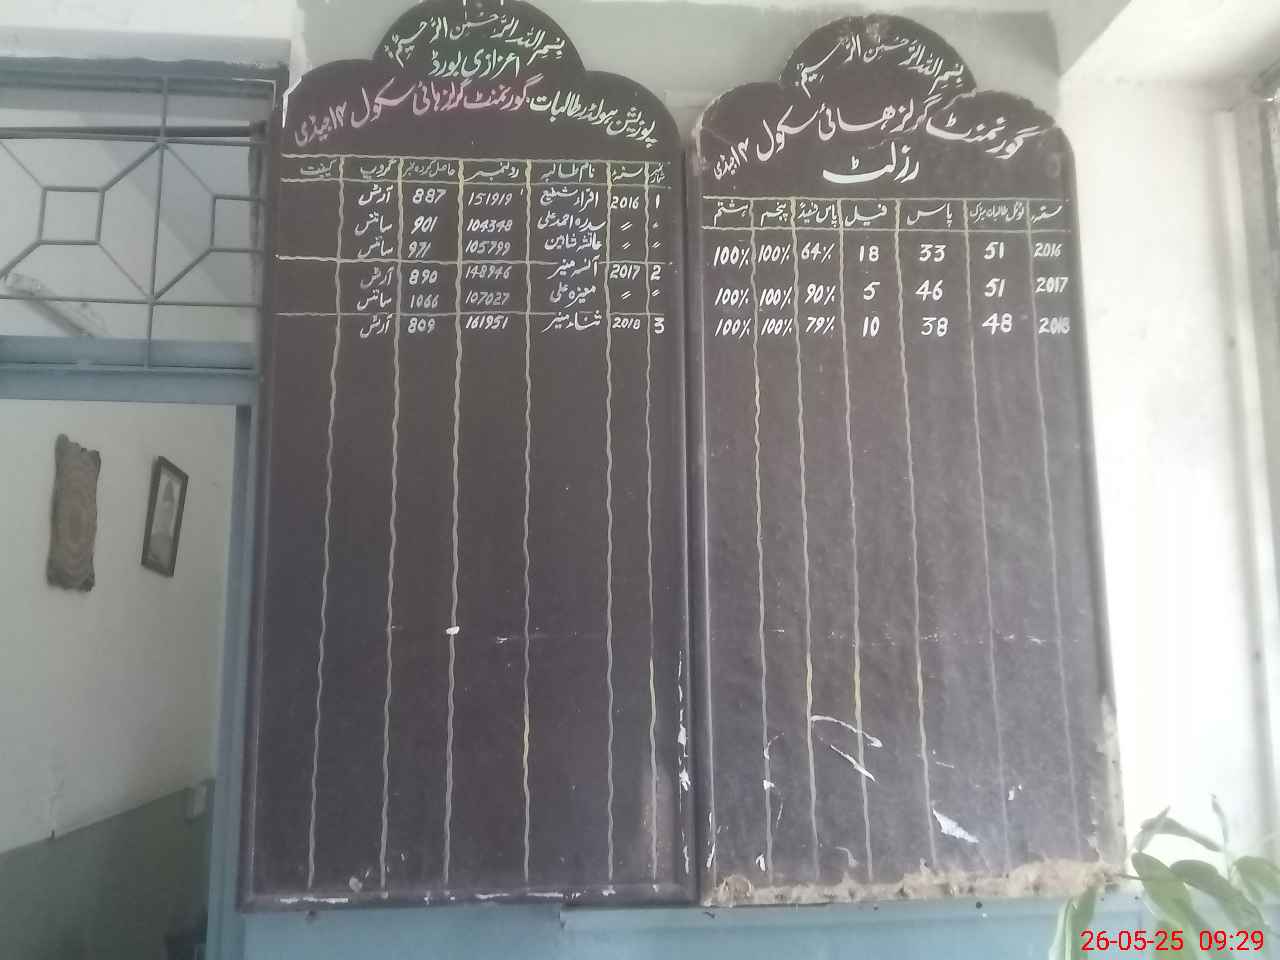 بِسْمِ اللّٰہِ الرَّحْمٰنِ الرَّحِیْمِ
اعزازی بورڈ
پوزیشن ہولڈر طالبات گورنمنٹ گرلز ہائی سکول ۱۴ جیڈی
نمبر شمار سنہ نام طالبہ رولنمبر حاصل کردہ نمبر گروپ کیفیت
1 2016 اقراء شفیع 151919 887 آرٹس
〃 〃 سدرہ احمد علی 104348 901 سائنس
〃 〃 عائشہ شاہین 105799 971 سائنس
2 2017 آنسہ منیر 148946 890 آرٹس
〃 〃 منیزہ علی 107027 1066 سائنس
3 2018 ثناء منیر 161951 809 آرٹس
بِسْمِ اللّٰہِ الرَّحْمٰنِ الرَّحِیْمِ
گورنمنٹ گرلز ھائی سکول ۱۴ جیڈی
رزلٹ
سنہ ٹوٹل طالبات میٹرک پاس فیل پاس فیصد پنجم ہشتم
2016 51 33 18 64٪ 100٪ 100٪
2017 51 46 5 90٪ 100٪ 100٪
2018 48 38 10 79٪ 100٪ 100٪
26-05-25 09:29